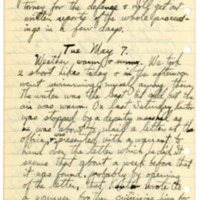 torney for the defense & will get out
written reports of the whole proceed-
ings in a few days.
Tue May 7.
Weather, warm & sunny. We took
2 short hikes today & in the afternoon
went swimming,
The water was but the
air was warm. On last Saturday
was stopped by a deputy marshal as
he was about to mail a letter at the
office, & presented with a warrant to
hand over the letter which he did. It
seems that about a week before that
it was found, probably by opening
of the letter, that wrote to
a younger brother criticising him for